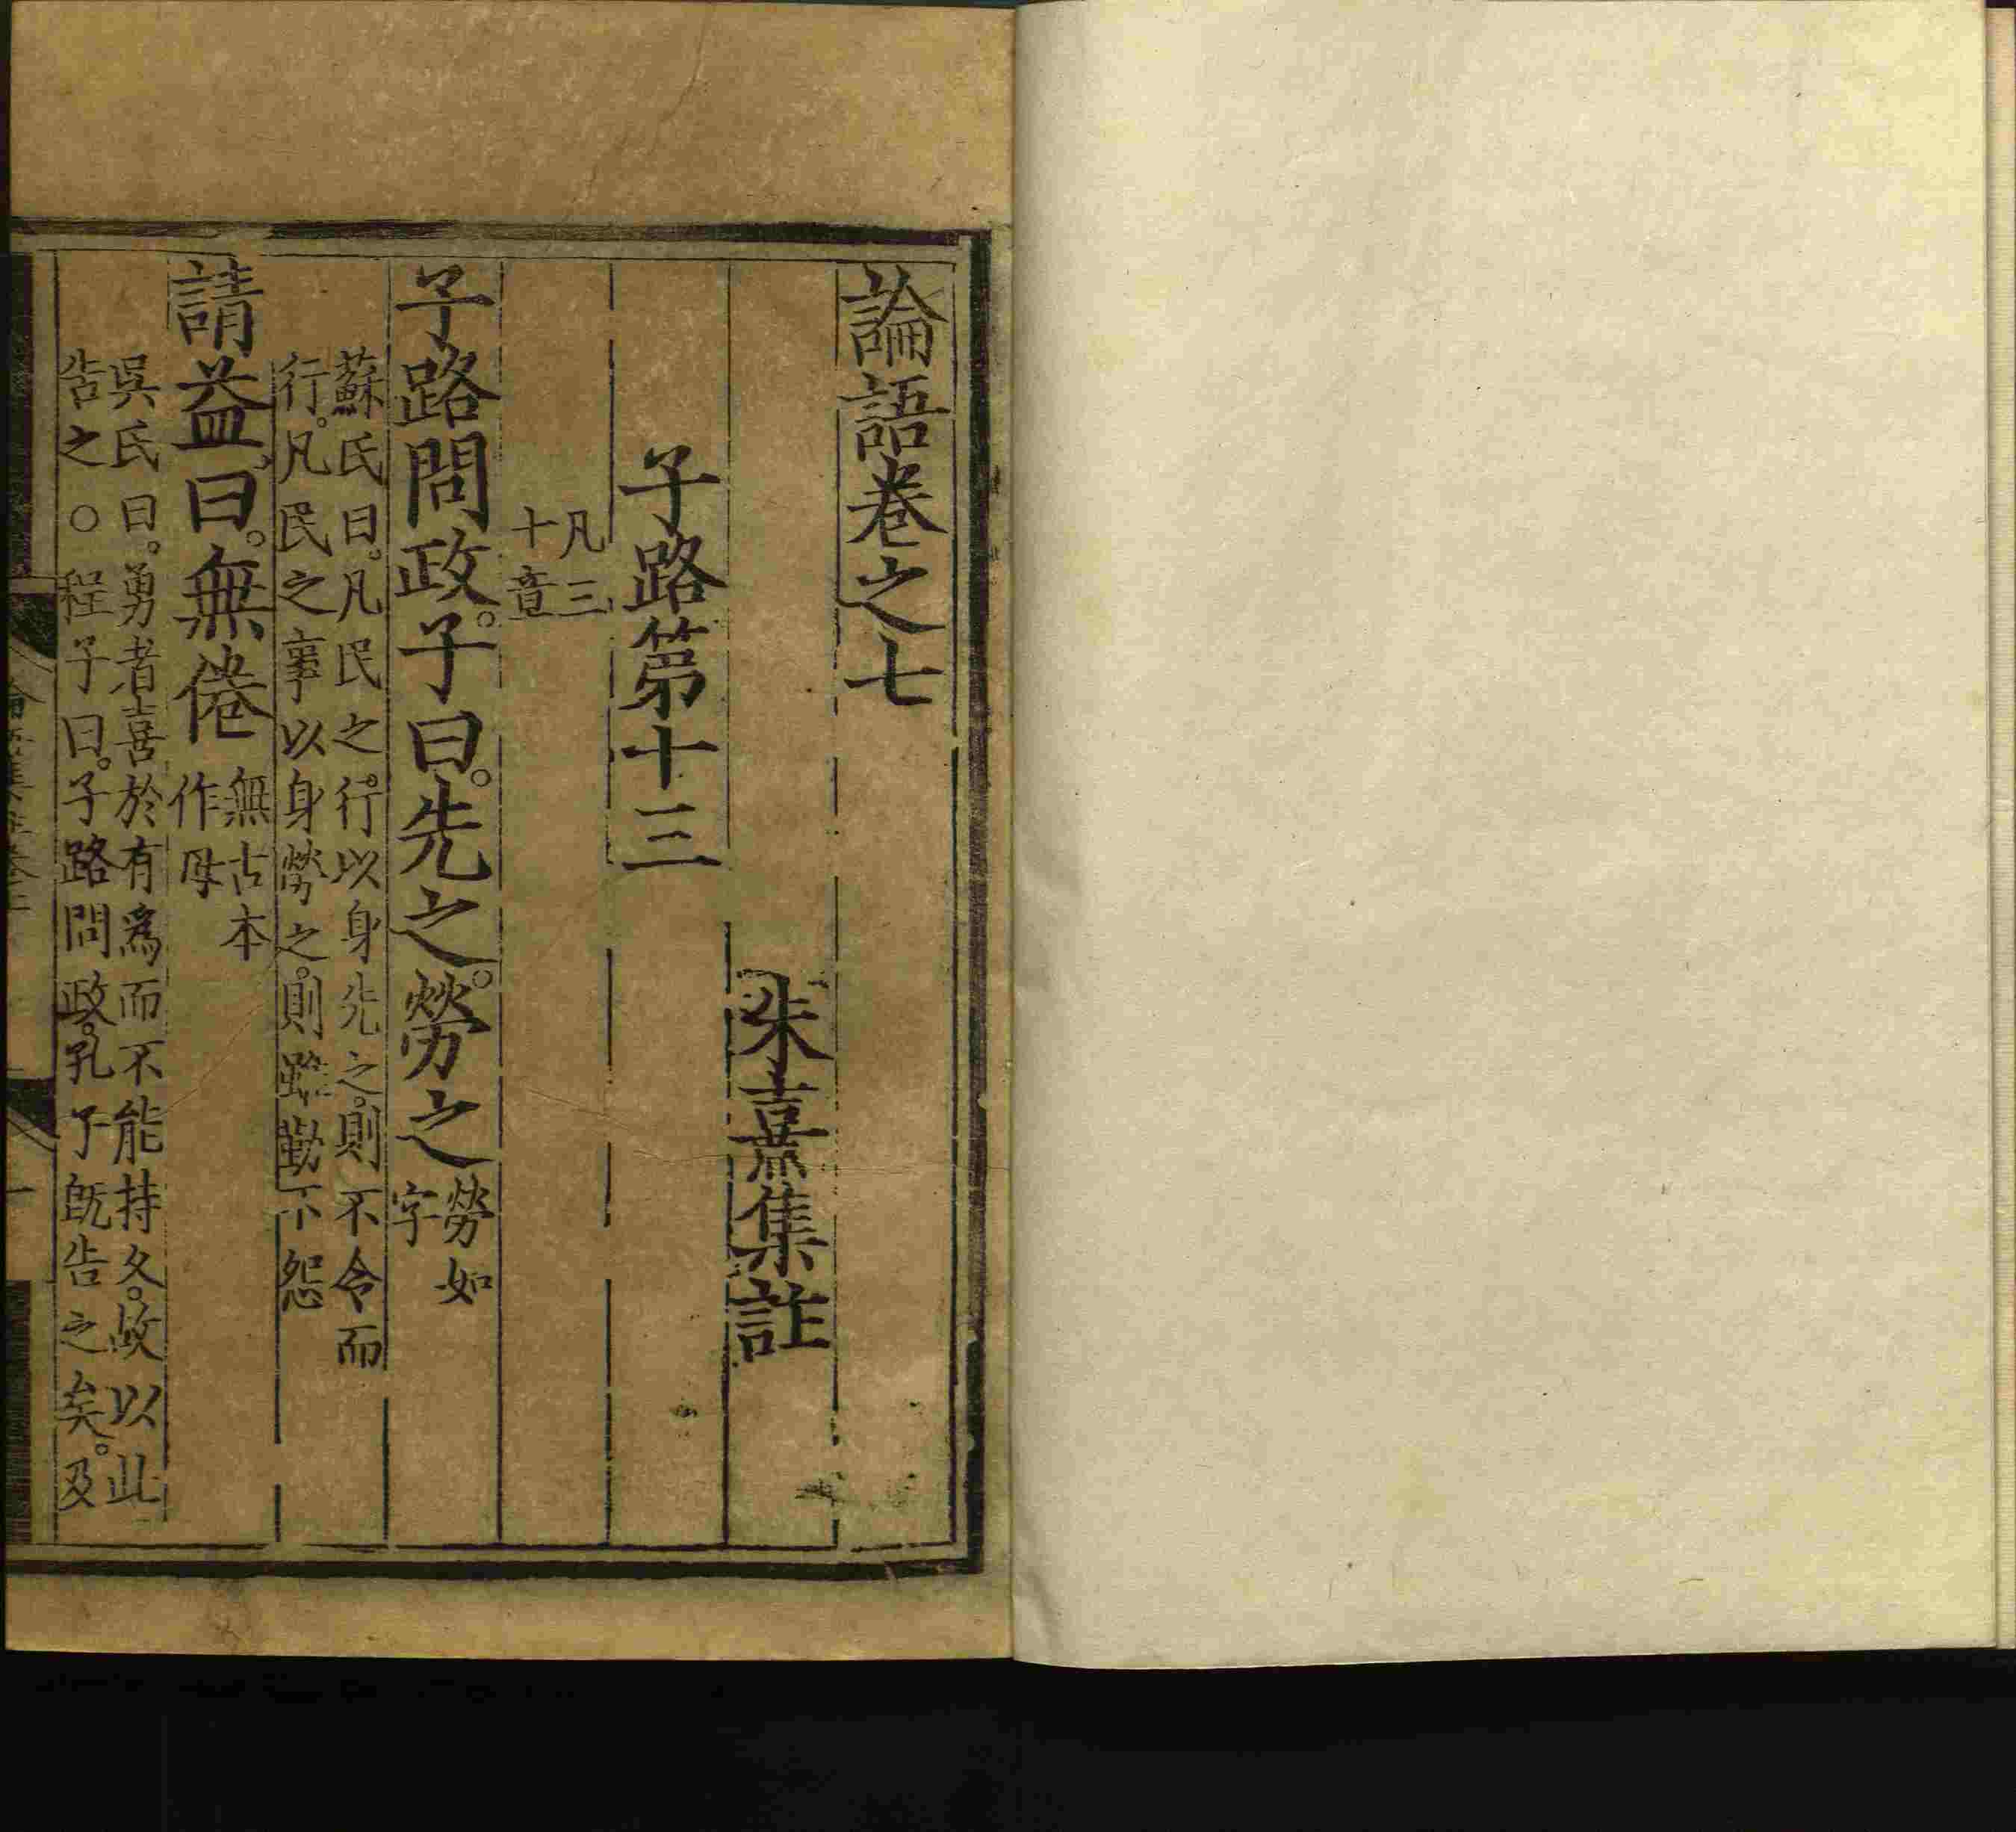 論語卷之七
朱熹集註
子路第十三
凡三
十章
子路問政。子曰。先之。勞之
勞如
字
蘇氏曰。凡民之行。以身先之。則不令而
行。凡民之事以身勞之。則雖勤不怨
請益曰。無倦
無古本
作毋
吳氏曰。勇者喜於有爲而不能持久。故以此
告之○程子曰。子路問政。孔子旣告之矣。及